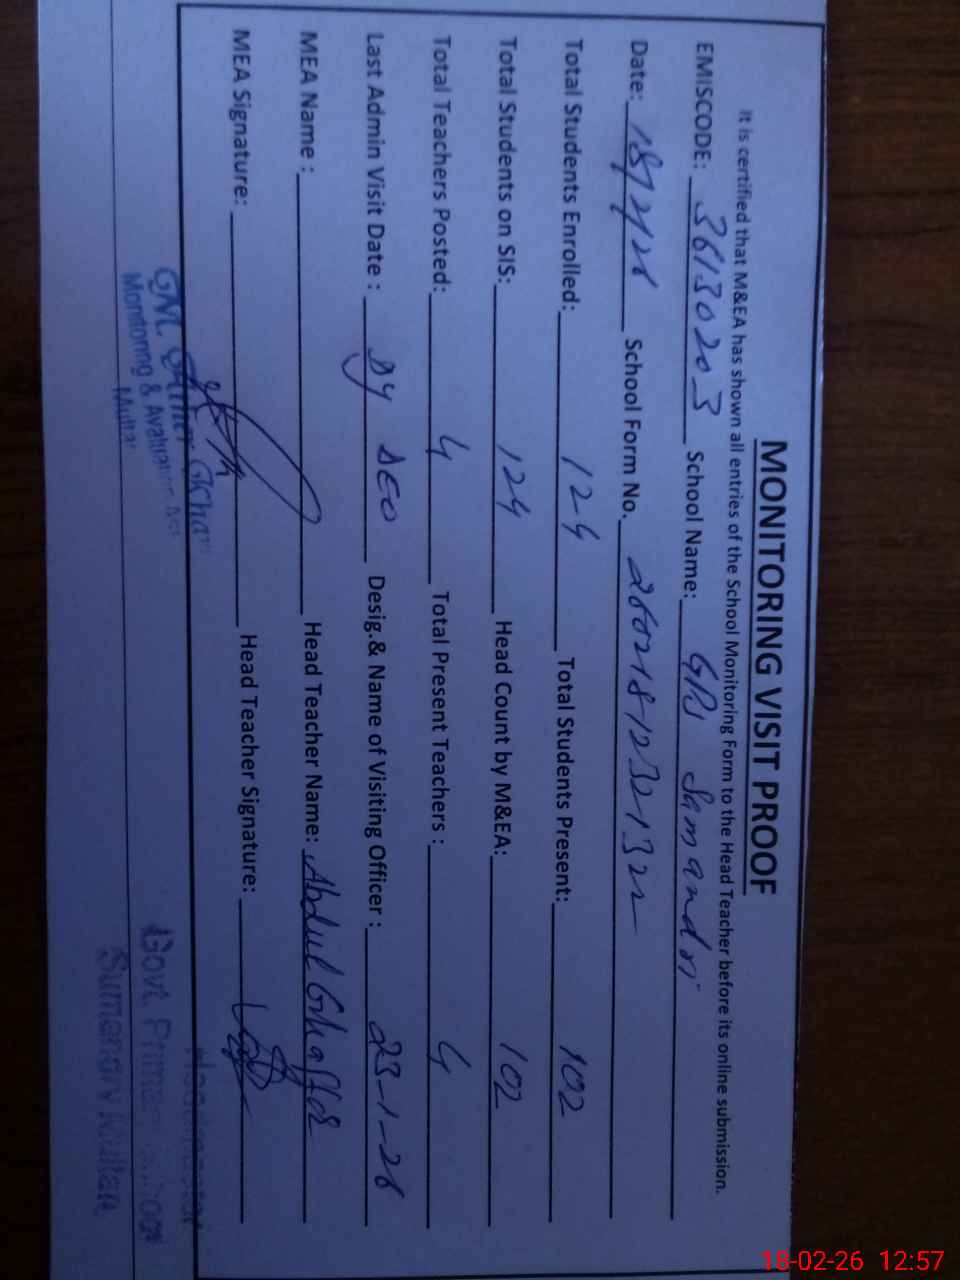 MONITORING VISIT PROOF
It is certified that M&EA has shown all entries of the School Monitoring Form to the Head Teacher before its online submission.
EMISCODE: 36130203 School Name: GPS Samandri
Date: 18/2/26 School Form No. 26021812321322
Total Students Enrolled: 124 Total Students Present: 102
Total Students on SIS: 124 Head Count by M&EA: 102
Total Teachers Posted: 4 Total Present Teachers : 4
Last Admin Visit Date : Dy DEO Desig.& Name of Visiting Officer : 23-1-26
MEA Name : Head Teacher Name: Abdul Ghaffar
MEA Signature: Head Teacher Signature:
Monitoring &
Multan
Headmaster
Govt. Primary School
Sumandri Multan
18-02-26 12:57